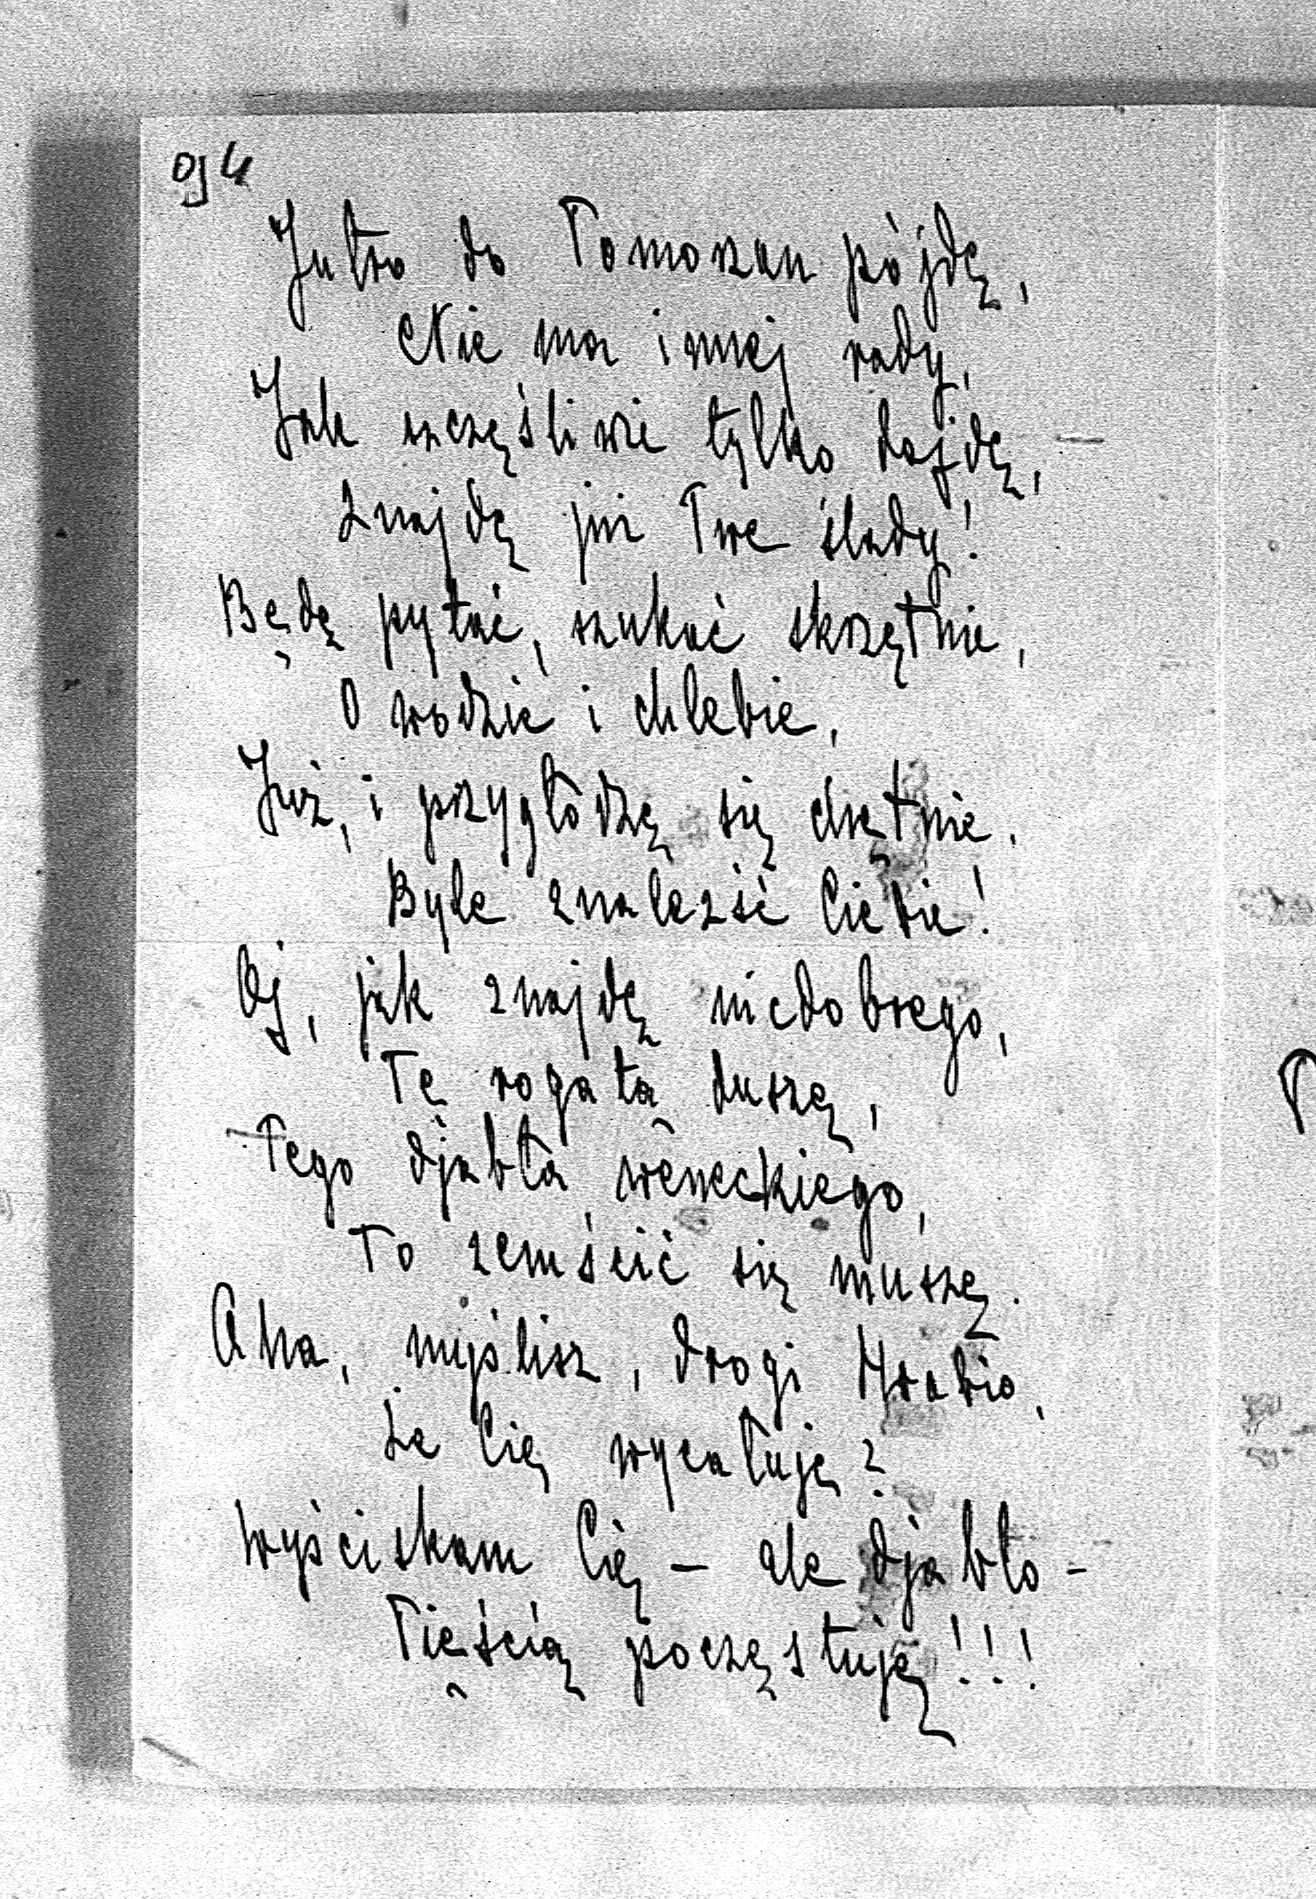 094
Jutro do Pomorzan pójdę,
Nie ma innej rady,
Jak szczęśliwie tylko dojdę, —
Znajdę już Twe ślady!
Będę pytać, szukać skrzętnie,
O wodzie i chlebie,
Już, i przygłodzę się chętnie,
Byle znaleźść Ciebie!
Oj, jak znajdę niedobrego,
Tę rogatą duszę,
Tego djabła weneckiego,
To zemścić się muszę.
Aha, myślisz, drogi Hrabio,
Że Cię wycałuję?
Wyściskam Cię – ale djabło –
Pięścią poczęstuję!!!